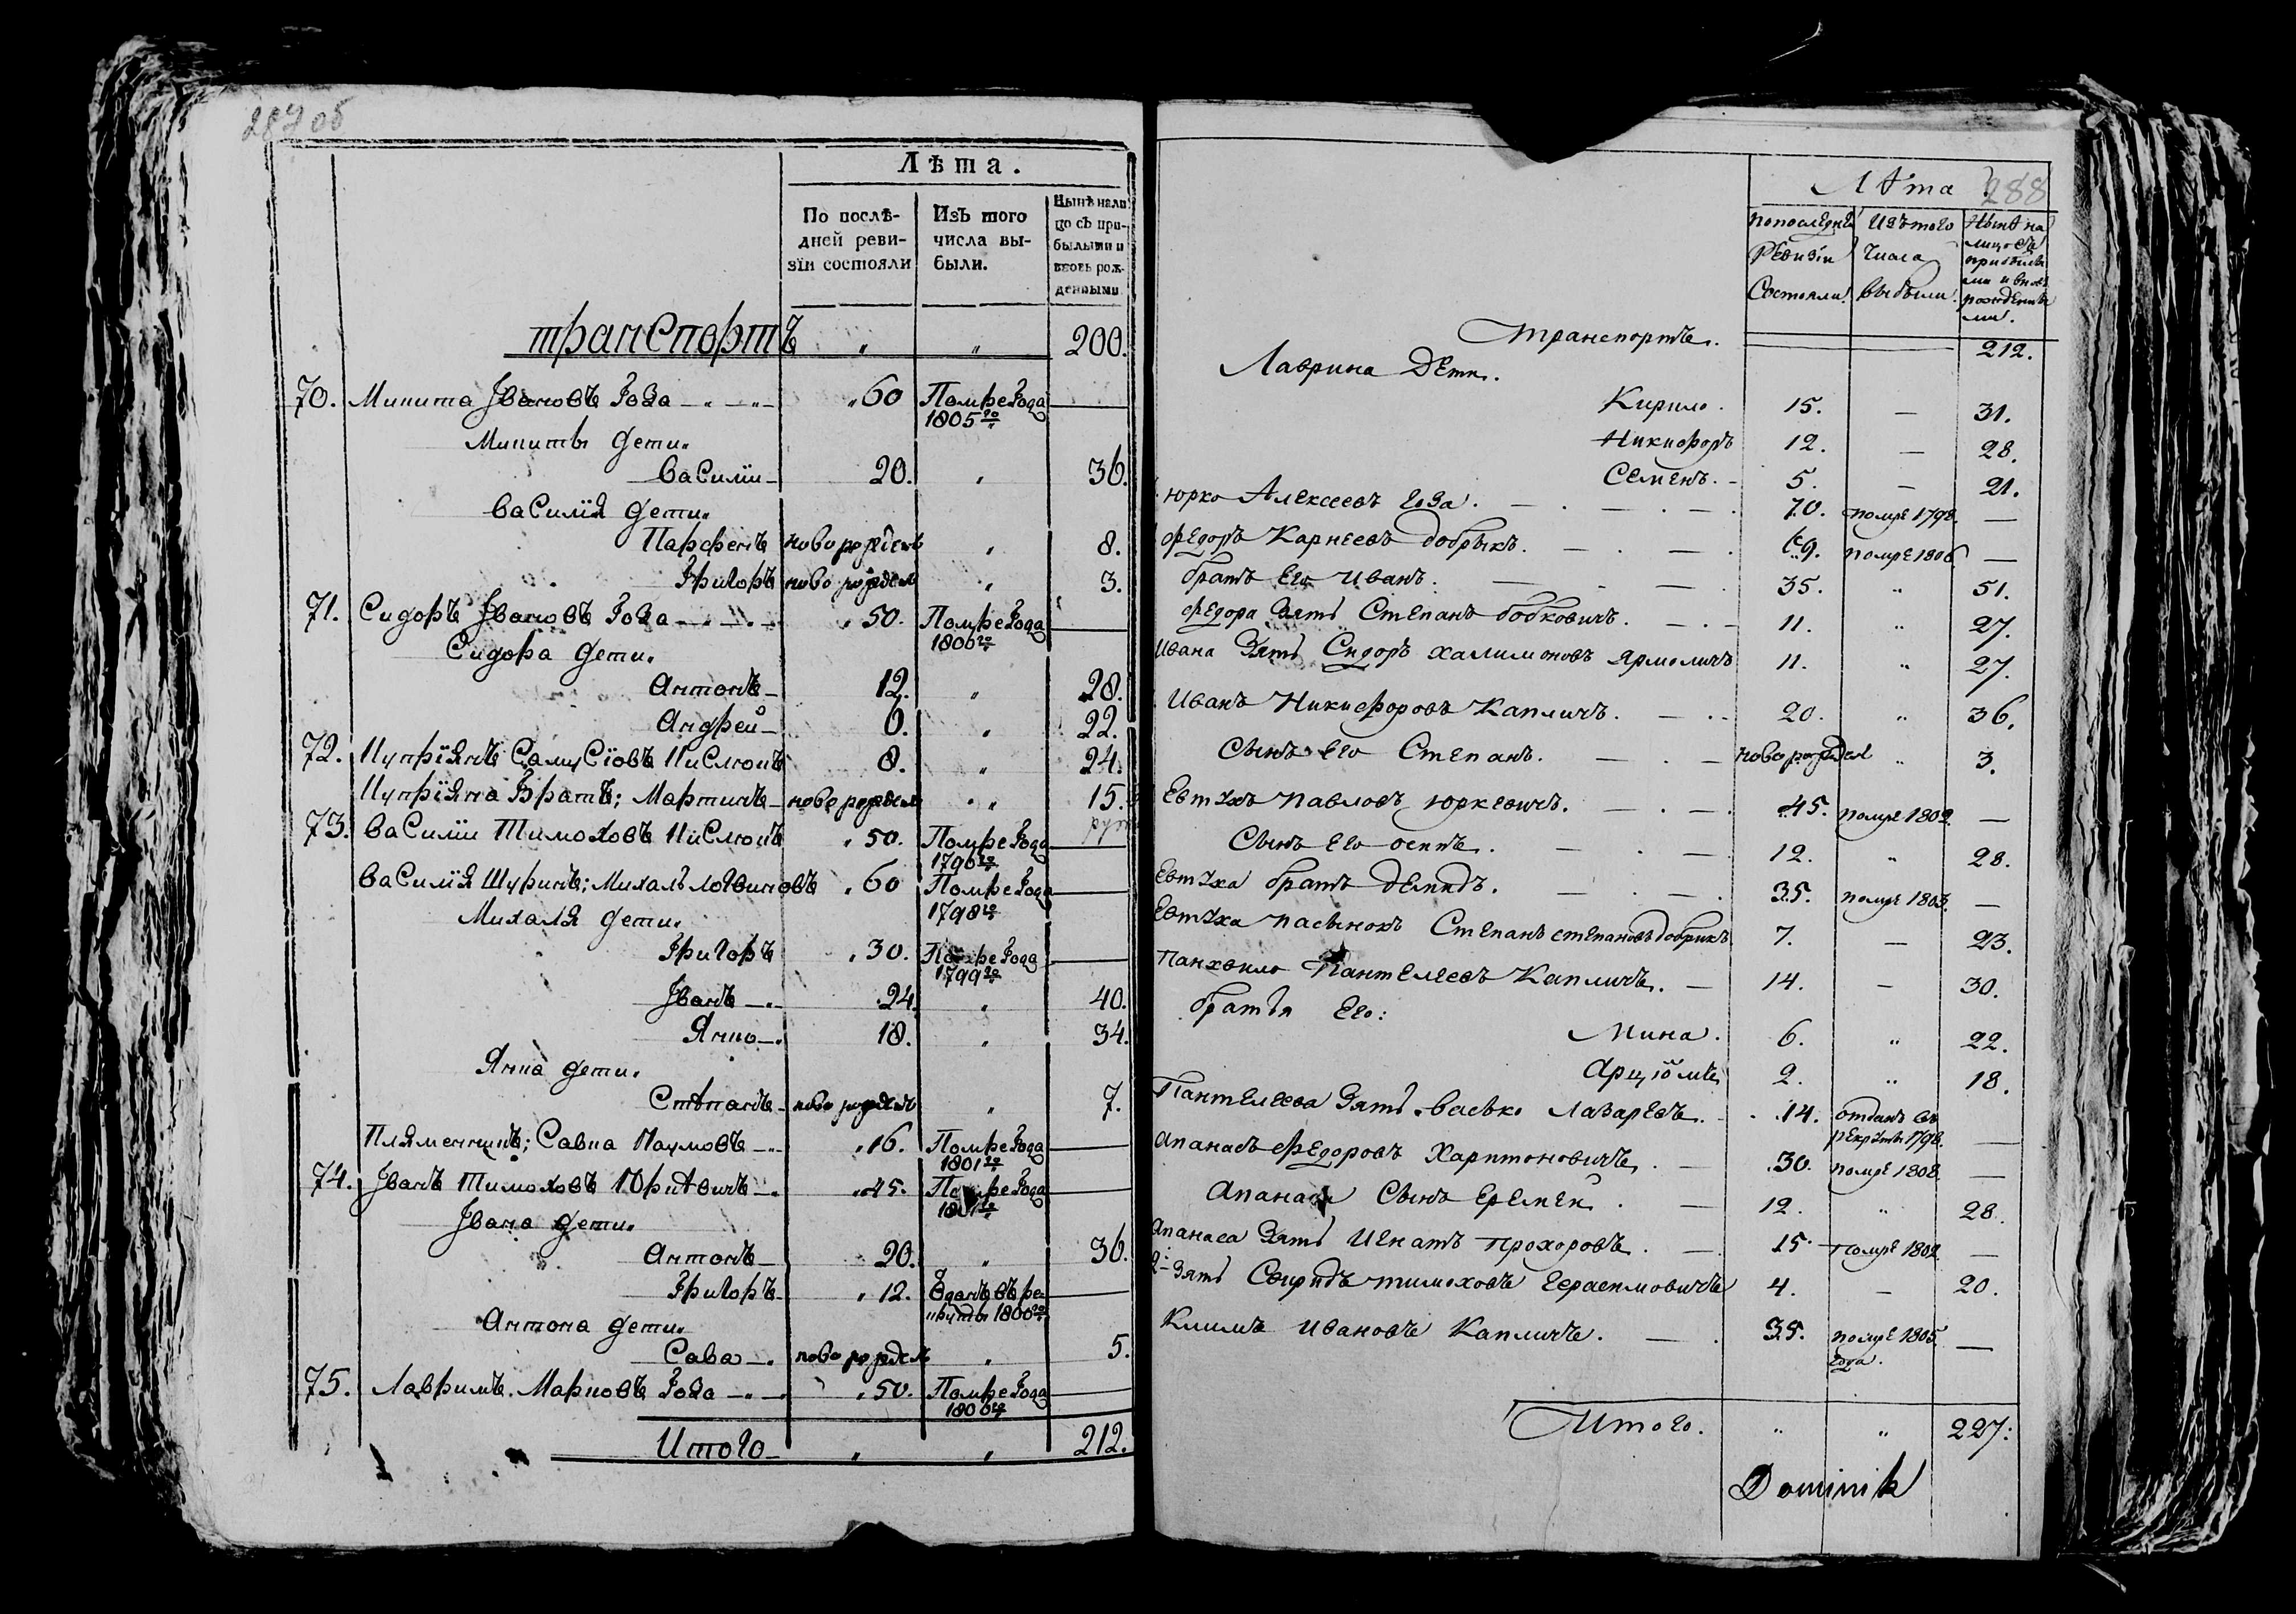 287 об
Лѣта.
По послѣ-
дней реви-
зіи состояли
Изъ того
числа вы-
были.
Нынѣ нали
цо съ при-
былыми и
вновь рож-
денными
транспортъ " " 200.
70. Микита Јвановъ Гоза "60 Помре Года —
1805го
Микиты дети.
василіи 20. " 36.
василія дети.
Парфенъ ново рожденъ " 8.
Григоръ ново рожден " 3.
71. Сидоръ Јвановъ Гоза "50. Помре Года —
1806го
Сидора дети.
Антонъ 12. " 28.
Андрей 6. " 22.
72. Купріянъ Самусіовъ Кислюкъ 8. " 24.
Купріяна Братъ; Мартинъ ново рожден " 15.
73. василіи Тимоховъ Кислюкъ "50. Помре Года —
1796го
василія Шуринъ; Михалъ логвиновъ "60 Помре Года —
1798го
Михаля дети.
Григоръ "30. Помре Года —
1799го
Јванъ 24. " 40.
Янко 18. " 34.
Янка дети.
Стѣпанъ ново рожденъ " 7.
Пляменникъ; Савка Наумовъ "16. Помре Года —
1801го
74. Јванъ Тимоховъ "45. Помре Года —
Јвана дети.
Антонъ 20. " 36.
Григоръ "12. Зданъ въ ре- —
круты 1800го
Антона дети.
Сава ново рожденъ " 5.
75. Лавринъ Марковъ Гоза "50. Помре Года —
1806го
Итого " " 212.
Лѣта 288
По последнѣ
Ревизіи
Состояли.
Изъ того
числа
выбыли.
Нынѣ на
лицо съ
прибылы
ми и вновь
рожденны
ми.
Транспортъ. 212.
Лаврина Дети.
Кирило. 15. — 31.
Никифоръ 12. — 28.
Семенъ. 5. — 21.
Юрко Алексеевъ Гоза. 70. помре 1798. —
Федоръ Карнеевъ добрыкъ. 69. помре 1806 —
братъ Его Иванъ. 35. " 51.
Федора Зять Степанъ бобковичъ. 11. " 27.
Ивана Зять Сидоръ халимоновъ ярмоличъ 11. " 27.
Иванъ Никифоровъ Капличъ. 20. " 36.
Сынъ Его Степанъ. новорожден " 3.
Евтухъ Павловъ Юркевичъ. 45. помре 1802. —
Сынъ Его осипъ. 12. " 28.
Евтуха братъ Демидъ. 35. помре 1803. —
Евтуха пасынокъ Степанъ степановъ добрикъ 7. — 23.
Панхвило Пантелеевъ Капличъ. 14. — 30.
братья Его:
Мина. 6. " 22.
Арціомъ 2. " 18.
Пантелеева Зять васько Лазаревъ. 14. отданъ въ
рекруты 1798. —
Апанасъ Федоровъ Харитоновичъ. 30. помре 1808. —
Апанаса Сынъ Еремей. 12. " 28.
Апанаса Зять Игнатъ Прохоровъ. 15. помре 1802. —
2й Зять Свиридъ тимоховъ Герасимовичъ 4. — 20.
Климъ Ивановъ Капличъ. 35. помре 1805.
года. —
Итого. " " 227:
Dominik